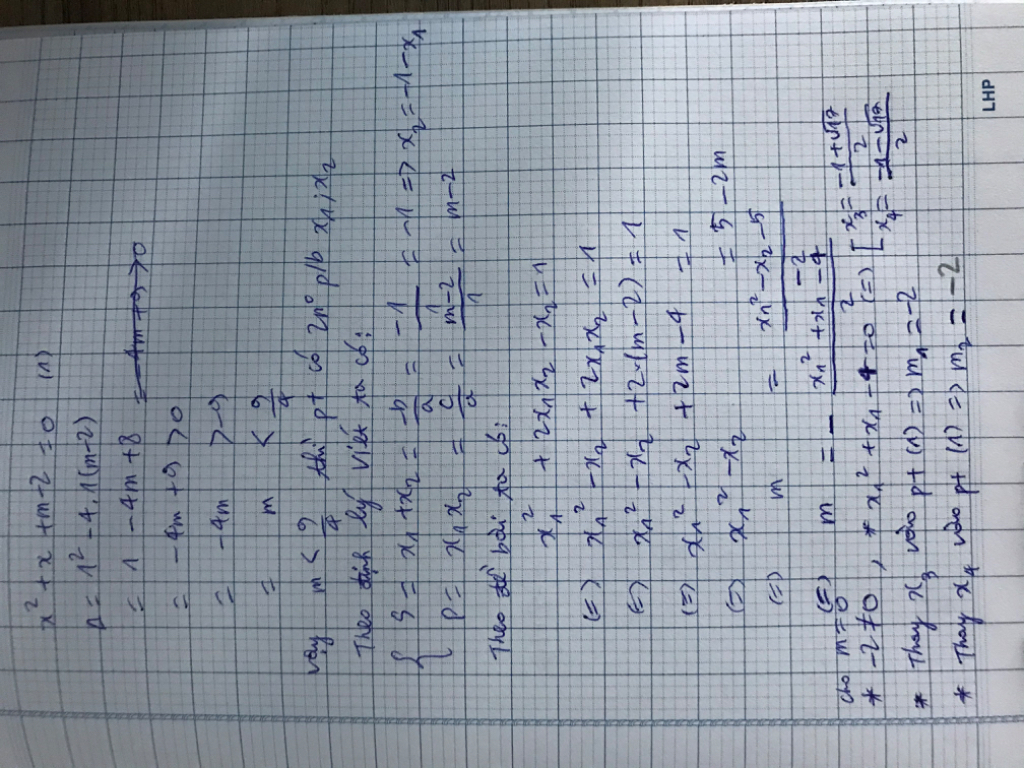 x² + x + m-2 = 0 (1)
Δ = 1² - 4.1(m-2)
= 1 - 4m + 8 = -4m+9>0
= -4m + 9 > 0
= -4m > -9
= m < 9/4
vậy m < 9/4 thì pt có 2n⁰ p/b x₁; x₂
Theo định lý Viét ta có:
{ S = x₁ + x₂ = -b/a = -1/1 = -1 => x₂ = -1 - x₁
P = x₁x₂ = c/a = m-2/1 = m-2
Theo đề bài ta có:
x₁² + 2x₁x₂ - x₂ = 1
(=) x₁² - x₂ + 2x₁x₂ = 1
(=) x₁² - x₂ + 2.(m-2) = 1
(=) x₁² - x₂ + 2m - 4 = 1
(=) x₁² - x₂ = 5 - 2m
(=) m = x₁² - x₂ - 5/-2
(=) m = - x₁² + x₁ - 4/2
cho m = 0
* -2 ≠ 0, * x₁² + x₁ - 4 = 0 (=) [ x₃ = -1+√17/2
x₄ = -1-√17/2
* Thay x₃ vào pt (1) => m₁ = -2
* Thay x₄ vào pt (1) => m₂ = -2
LHP